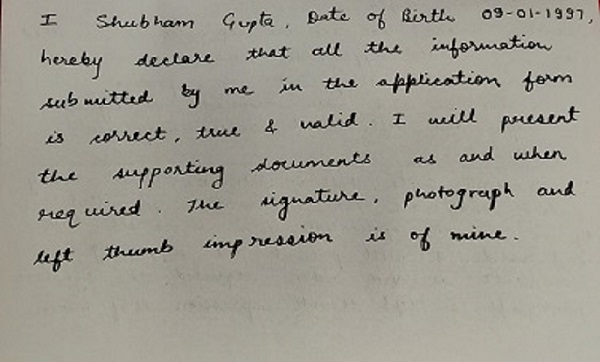 I Shubham Gupta, Date of Birth 09-01-1997,
hereby declare that all the information
submitted by me in the application form
is correct, true & valid. I will present
the supporting documents as and when
required. The signature, photograph and
left thumb impression is of mine.